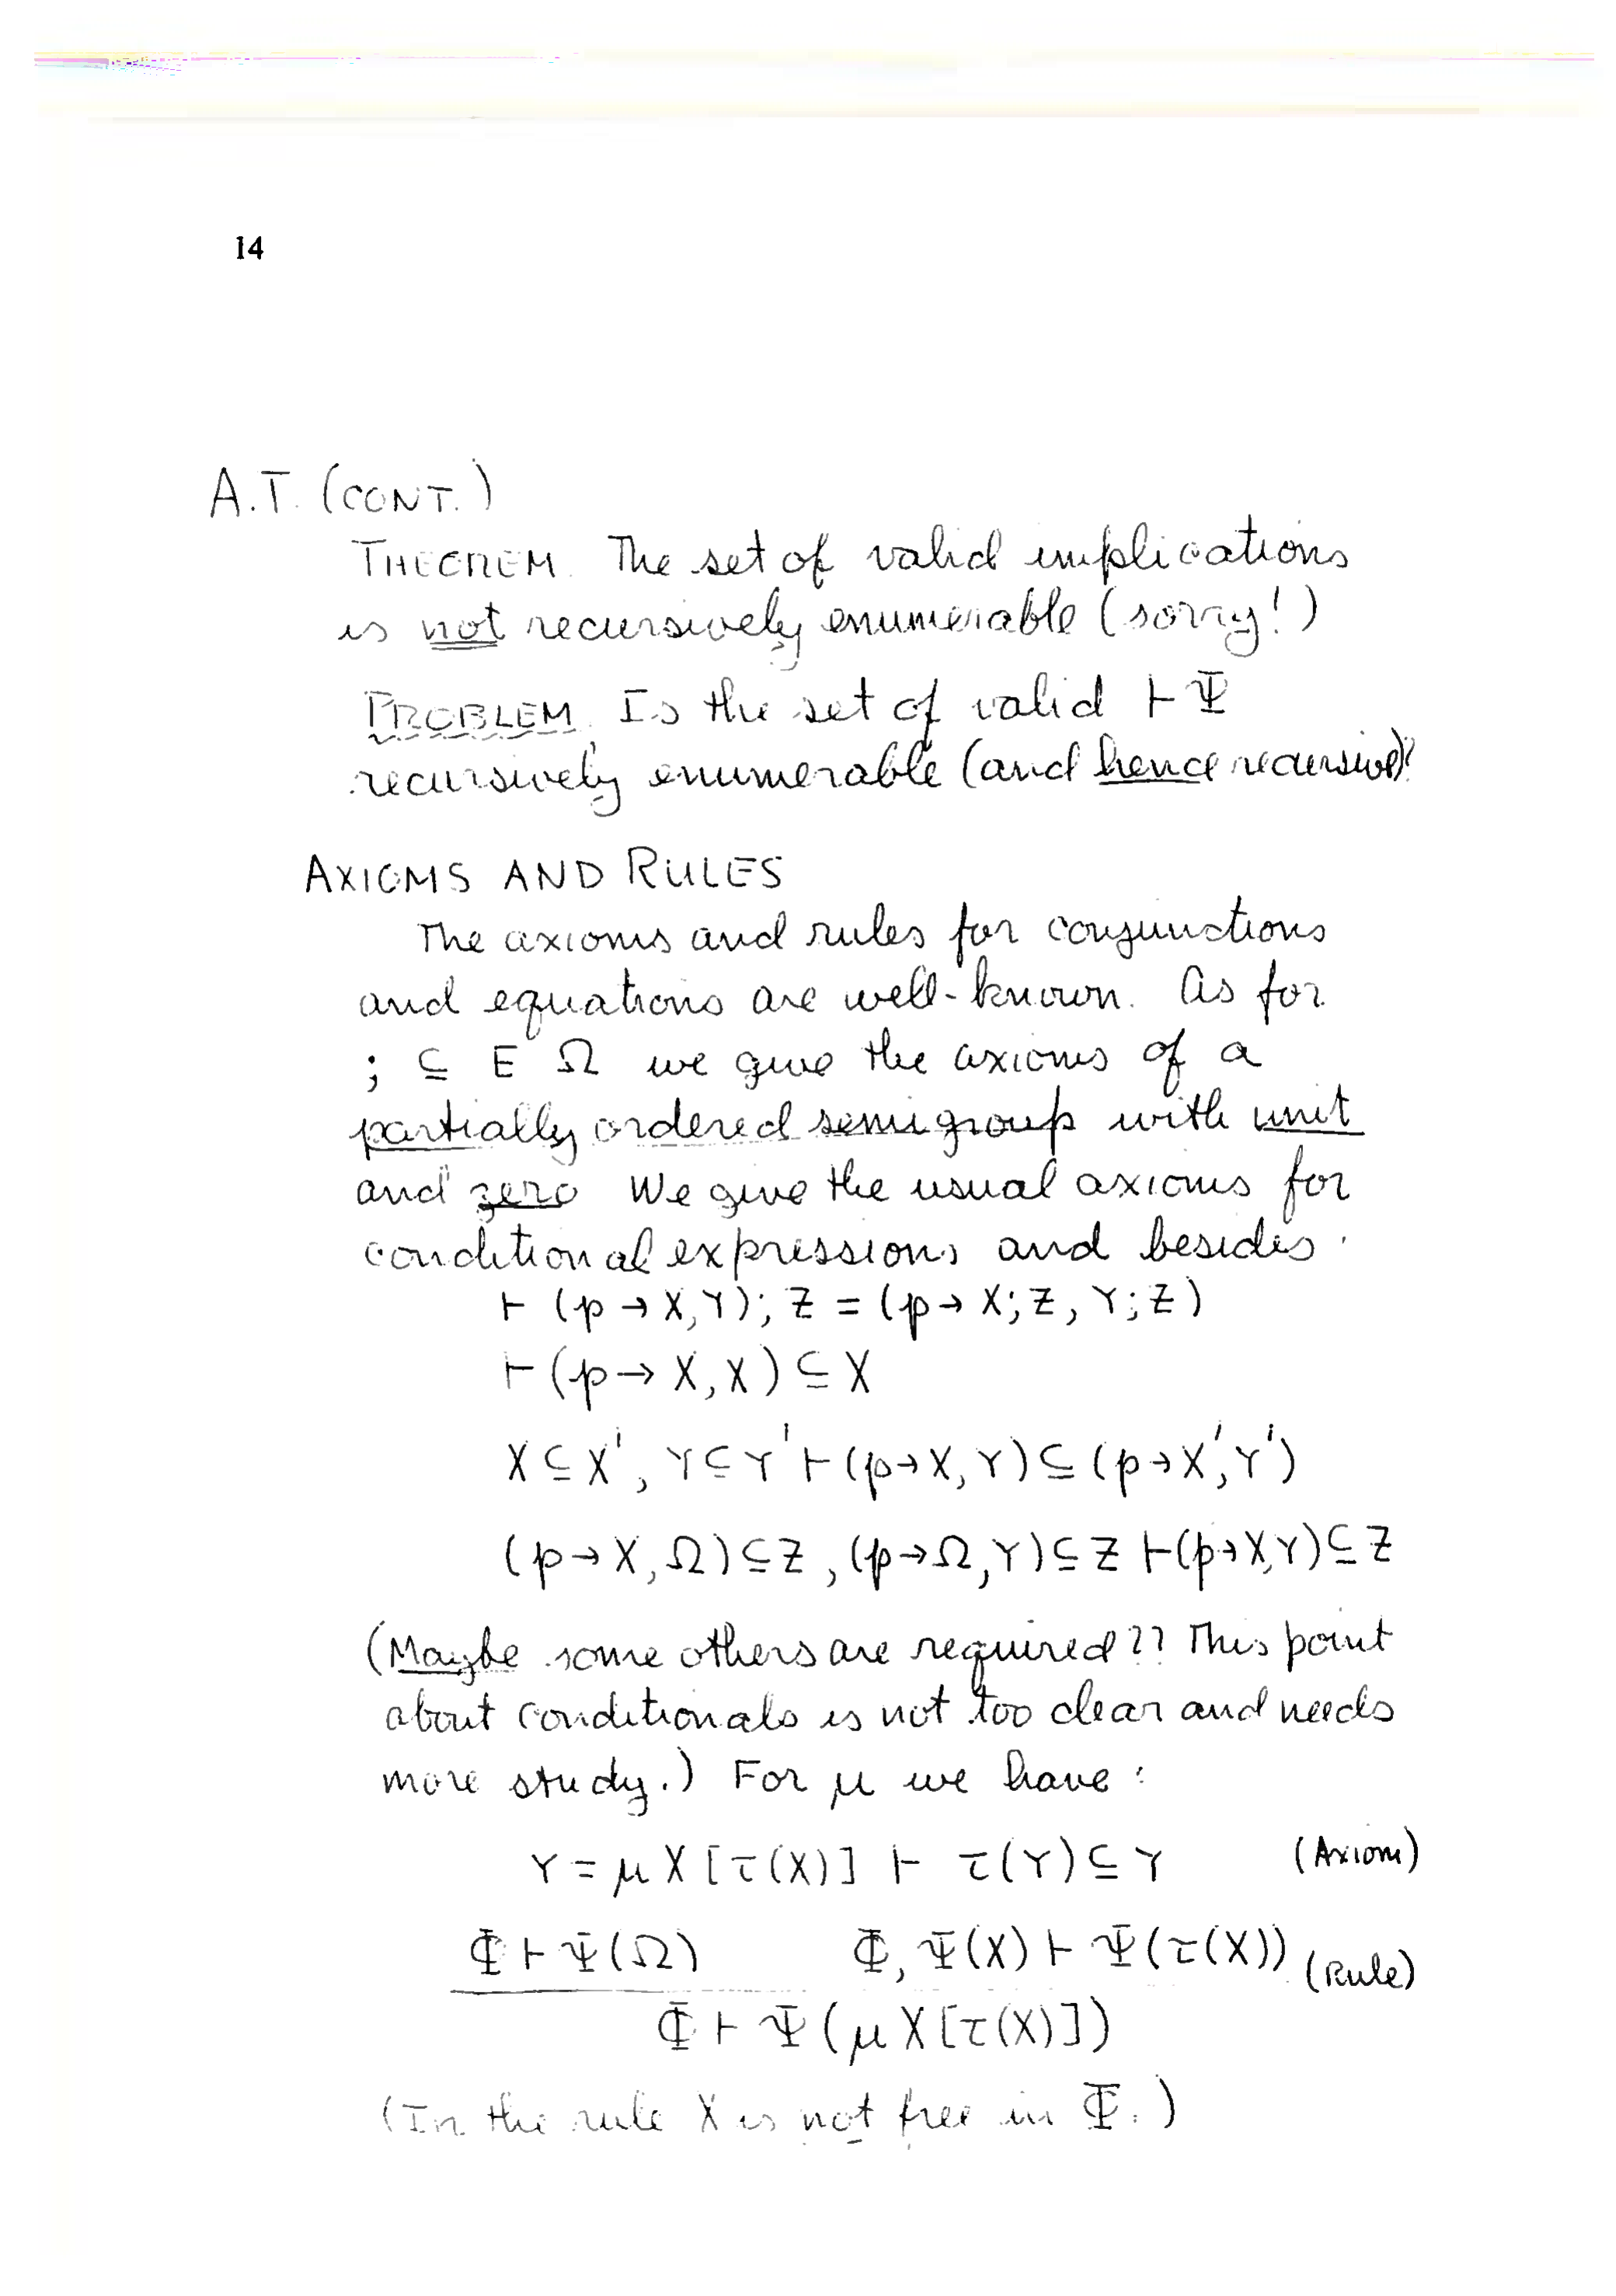 14
A.T. (CONT.)
THEOREM. The set of valid implications
is not recursively enumerable (sorry!)
PROBLEM. Is the set of valid ⊢ Ψ
recursively enumerable (and hence recursive)?
AXIOMS AND RULES
The axioms and rules for conjunctions
and equations are well-known. As for
; ⊆ E Ω we give the axioms of a
partially ordered semigroup with unit
and zero We give the usual axioms for
conditional expressions and besides:
⊢ (p → X, Y); Z = (p → X; Z, Y; Z)
⊢ (p → X, X) ⊆ X
X ⊆ X', Y ⊆ Y' ⊢ (p → X, Y) ⊆ (p → X', Y')
(p → X, Ω) ⊆ Z, (p → Ω, Y) ⊆ Z ⊢ (p → X, Y) ⊆ Z
(Maybe some others are required?? This point
about conditionals is not too clear and needs
more study.) For μ we have:
Y = μ X [τ(X)] ⊢ τ(Y) ⊆ Y (Axiom)
Φ ⊢ Ψ(Ω) Φ, Ψ(X) ⊢ Ψ(τ(X)) (Rule)
Φ ⊢ Ψ(μ X [τ(X)])
(In the rule X is not free in Φ.)